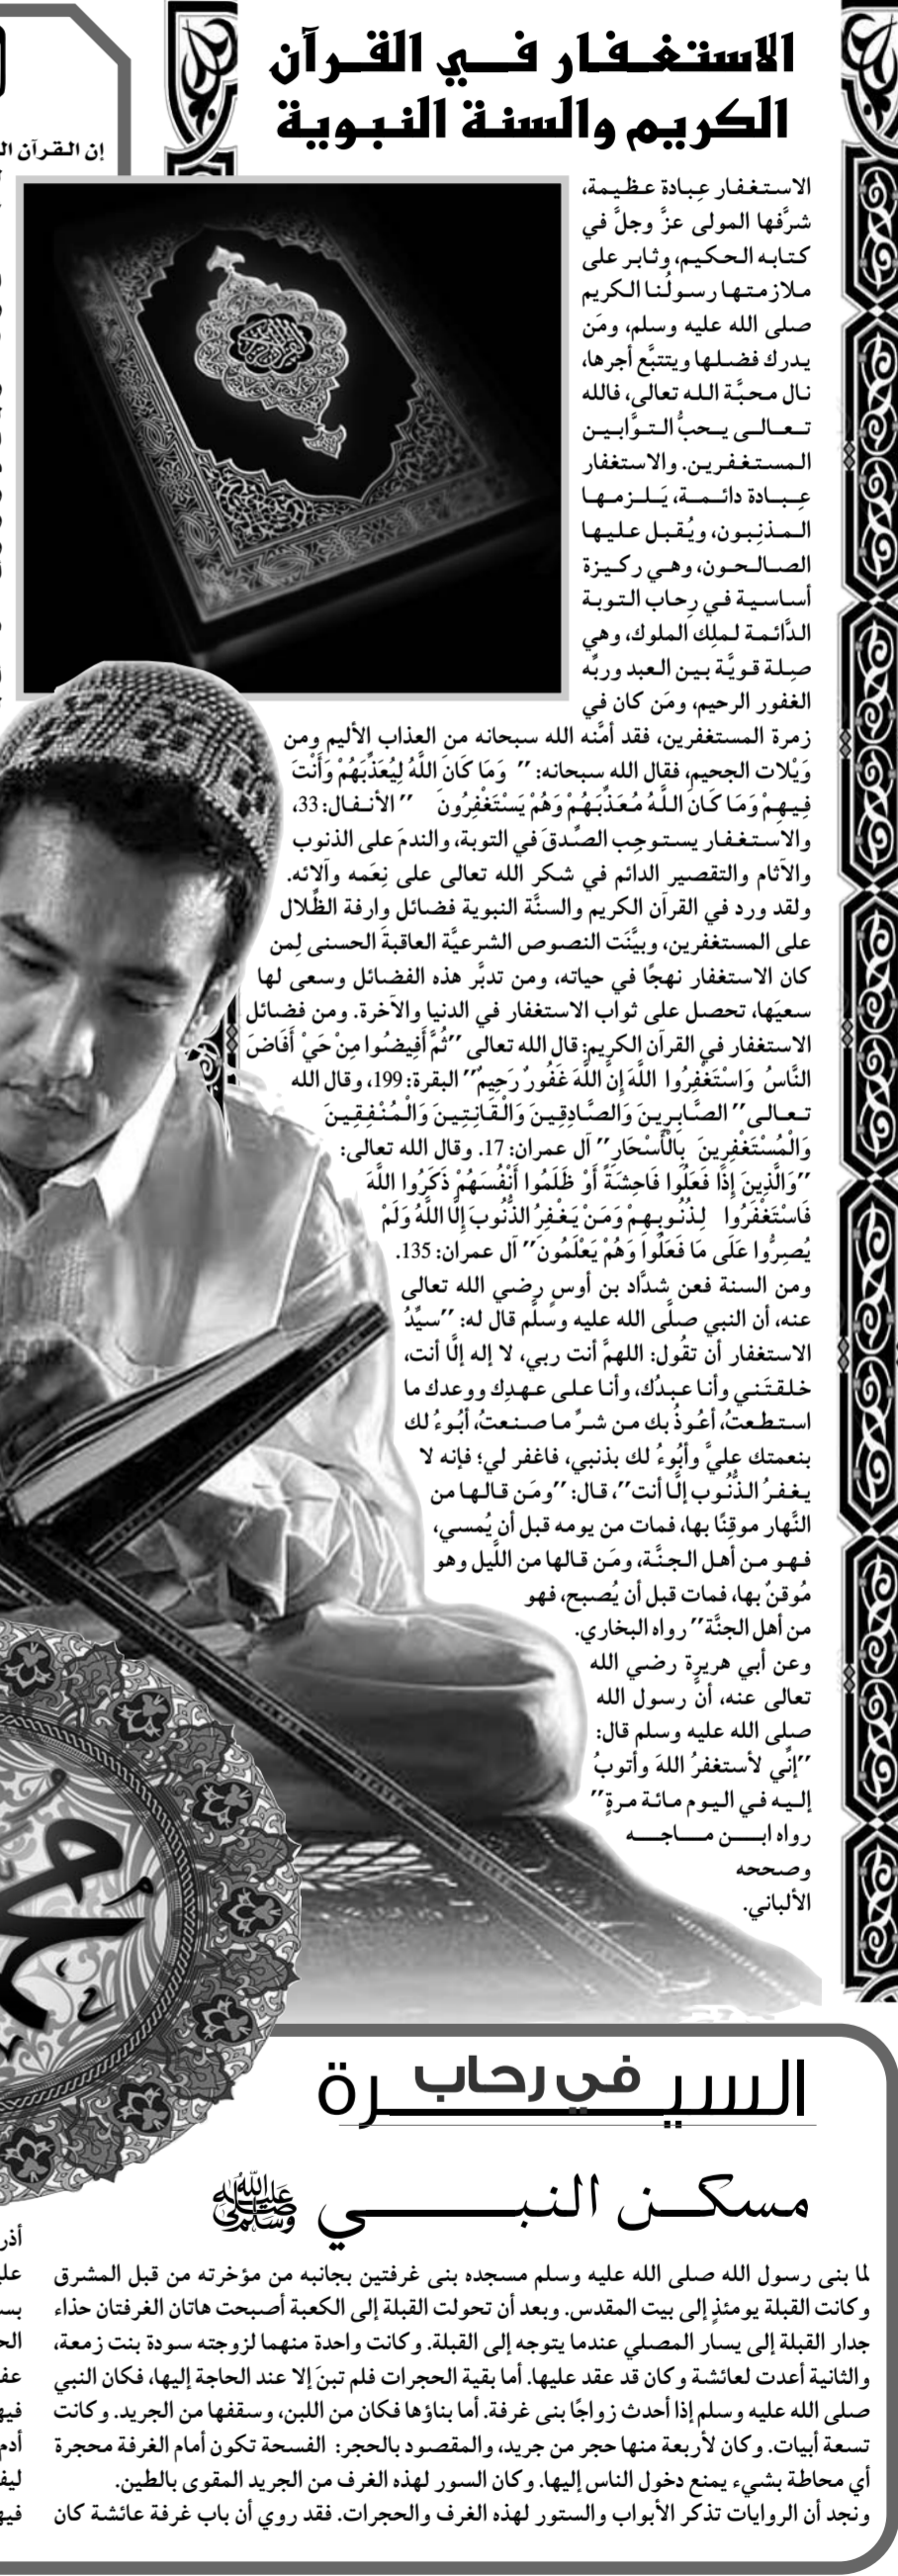 الاستغفار في القرآن
الكريم والسنة النبوية
إن القرآن
الاستغفار عِبادة عظيمة،
شرَّفها المولى عزَّ وجلَّ في
كتابه الحكيم، وثابر على
ملازمتها رسولُنا الكريم
صلى الله عليه وسلم، ومَن
يدرك فضلها ويتتبَّع أجرها،
نال محبَّة الله تعالى، فالله
تعالى يحبُّ التوَّابين
المستغفرين. والاستغفار
عِبادة دائمة، يَلزمها
المذنِبون، ويُقبل عليها
الصالحون، وهي ركيزة
أساسية في رِحاب التوبة
الدَّائمة لملِك الملوك، وهي
صِلة قويَّة بين العبد وربِّه
الغفور الرحيم، ومَن كان في
زمرة المستغفرين، فقد أمَّنه الله سبحانه من العذاب الأليم ومن
وَيْلات الجحيم، فقال الله سبحانه: ” وَمَا كَانَ اللَّهُ لِيُعَذِّبَهُمْ وَأَنْتَ
فِيهِمْ وَمَا كَانَ اللَّهُ مُعَذِّبَهُمْ وَهُمْ يَسْتَغْفِرُونَ ” الأنفال: 33،
والاستغفار يستوجِب الصِّدقَ في التوبة، والندمَ على الذنوب
والآثام والتقصير الدائم في شكر الله تعالى على نِعَمه وآلائه.
ولقد ورد في القرآن الكريم والسنَّة النبوية فضائل وارفة الظِّلال
على المستغفرين، وبيَّنَت النصوص الشرعيَّة العاقبةَ الحسنى لِمن
كان الاستغفار نهجًا في حياته، ومن تدبَّر هذه الفضائل وسعى لها
سعيَها، تحصل على ثواب الاستغفار في الدنيا والآخرة. ومن فضائل
الاستغفار في القرآن الكريم: قال الله تعالى ”ثُمَّ أَفِيضُوا مِنْ حَيْ أَفَاضَ
النَّاسُ وَاسْتَغْفِرُوا اللَّهَ إِنَّ اللَّهَ غَفُورٌ رَحِيمٌ” البقرة: 199، وقال الله
تعالى” الصَّابِرِينَ وَالصَّادِقِينَ وَالْقَانِتِينَ وَالْمُنْفِقِينَ
وَالْمُسْتَغْفِرِينَ بِالْأَسْحَارِ” آل عمران: 17. وقال الله تعالى:
”وَالَّذِينَ إِذَا فَعَلُوا فَاحِشَةً أَوْ ظَلَمُوا أَنْفُسَهُمْ ذَكَرُوا اللَّهَ
فَاسْتَغْفَرُوا لِذُنُوبِهِمْ وَمَنْ يَغْفِرُ الذُّنُوبَ إِلَّا اللَّهُ وَلَمْ
يُصِرُّوا عَلَى مَا فَعَلُوا وَهُمْ يَعْلَمُونَ” آل عمران: 135.
ومن السنة فعن شدَّاد بن أوسٍ رضي الله تعالى
عنه، أن النبي صلَّى الله عليه وسلَّم قال له: ”سيِّدُ
الاستغفار أن تقُول: اللهمَّ أنت ربي، لا إله إلَّا أنت،
خلقتَني وأنا عبدُك، وأنا على عهدِك ووعدك ما
استطعتُ، أعُوذُ بك من شرِّ ما صنعتُ، أبُوءُ لك
بنعمتك عليَّ وأبُوءُ لك بذنبي، فاغفر لي؛ فإنه لا
يغفرُ الذُّنُوب إلَّا أنت”، قال: ”ومَن قالها من
النَّهار موقِنًا بها، فمات من يومه قبل أن يُمسي،
فهو من أهل الجنَّة، ومَن قالها من اللَّيل وهو
مُوقنٌ بها، فمات قبل أن يُصبح، فهو
من أهل الجنَّة” رواه البخاري.
وعن أبي هريرة رضي الله
تعالى عنه، أنَّ رسول الله
صلى الله عليه وسلم قال:
”إنِّي لأستغفرُ اللهَ وأتوبُ
إليه في اليوم مائة مرةٍ”
رواه ابن ماجه
وصححه
الألباني.
في رحاب
السيرة
مسكن النبي ﷺ
لما بنى رسول الله صلى الله عليه وسلم مسجده بنى غرفتين بجانبه من مؤخرته من قبل المشرق
وكانت القبلة يومئذٍ إلى بيت المقدس. وبعد أن تحولت القبلة إلى الكعبة أصبحت هاتان الغرفتان حذاء
جدار القبلة إلى يسار المصلي عندما يتوجه إلى القبلة. وكانت واحدة منهما لزوجته سودة بنت زمعة،
والثانية أعدت لعائشة وكان قد عقد عليها. أما بقية الحجرات فلم تبنَ إلا عند الحاجة إليها، فكان النبي
صلى الله عليه وسلم إذا أحدث زواجًا بنى غرفة. أما بناؤها فكان من اللبن، وسقفها من الجريد. وكانت
تسعة أبيات. وكان لأربعة منها حجر من جريد، والمقصود بالحجر: الفسحة تكون أمام الغرفة محجرة
أي محاطة بشيء يمنع دخول الناس إليها. وكان السور لهذه الغرف من الجريد المقوى بالطين.
ونجد أن الروايات تذكر الأبواب والستور لهذه الغرف والحجرات. فقد روي أن باب غرفة عائشة كان